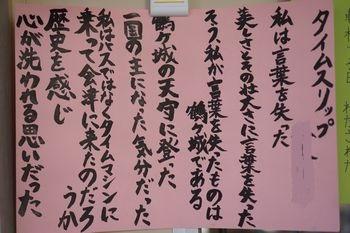 タイムスリップ
私は言葉を失った
美しさその壮大さに言葉を失った
そう私が言葉を失たものは
鶴ヶ城である
鶴ヶ城の天守に登った
一国の主になった気分だった
私はバスではなくタイムマシンに
乗って会津に来たのだろ
うか
歴史を感じ
心が洗われる思いだった